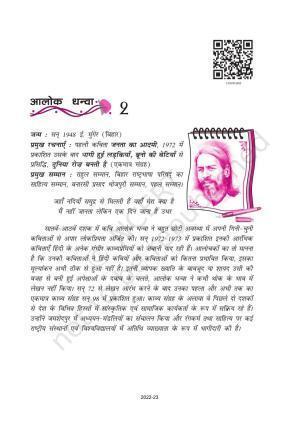 आलोक धन्वा
2
जन्म : सन् 1948 ई. मुंगेर (बिहार)
प्रमुख रचनाएँ : पहली कविता जनता का आदमी, 1972 में
प्रकाशित उसके बाद भागी हुई लड़कियाँ, ब्रूनो की बेटियाँ से
प्रसिद्धि, दुनिया रोज़ बनती है (एकमात्र संग्रह)
प्रमुख सम्मान : राहुल सम्मान, बिहार राष्ट्रभाषा परिषद् का
साहित्य सम्मान, बनारसी प्रसाद भोजपुरी सम्मान, पहल सम्मान।
जहाँ नदियाँ समुद्र से मिलती हैं वहाँ मेरा क्या है
मैं नहीं जानता लेकिन एक दिन जाना है उधर
सातवें-आठवें दशक में कवि आलोक धन्वा ने बहुत छोटी अवस्था में अपनी गिनी-चुनी
कविताओं से अपार लोकप्रियता अर्जित की। सन् 1972-1973 में प्रकाशित इनकी आरंभिक
कविताएँ हिंदी के अनेक गंभीर काव्यप्रेमियों को ज़बानी याद रही हैं। आलोचकों का तो मानना
है कि उनकी कविताओं ने हिंदी कवियों और कविताओं को कितना प्रभावित किया, इसका
मूल्यांकन अभी ठीक से हुआ नहीं है। इतनी व्यापक ख्याति के बावजूद या शायद उसी की
वजह से बनी हुई अपेक्षाओं के दबाव के चलते, आलोक धन्वा ने कभी थोक के भाव में
लेखन नहीं किया। सन् 72 से लेखन आरंभ करने के बाद उनका पहला और अभी तक का
एकमात्र काव्य संग्रह सन् 98 में प्रकाशित हुआ। काव्य संग्रह के अलावा वे पिछले दो दशकों
से देश के विभिन्न हिस्सों में सांस्कृतिक एवं सामाजिक कार्यकर्ता के रूप में सक्रिय रहे हैं।
उन्होंने जमशेदपुर में अध्ययन-मंडलियों का संचालन किया और रंगकर्म तथा साहित्य पर कई
राष्ट्रीय संस्थानों एवं विश्वविद्यालयों में अतिथि व्याख्याता के रूप में भागीदारी की है।
2022-23